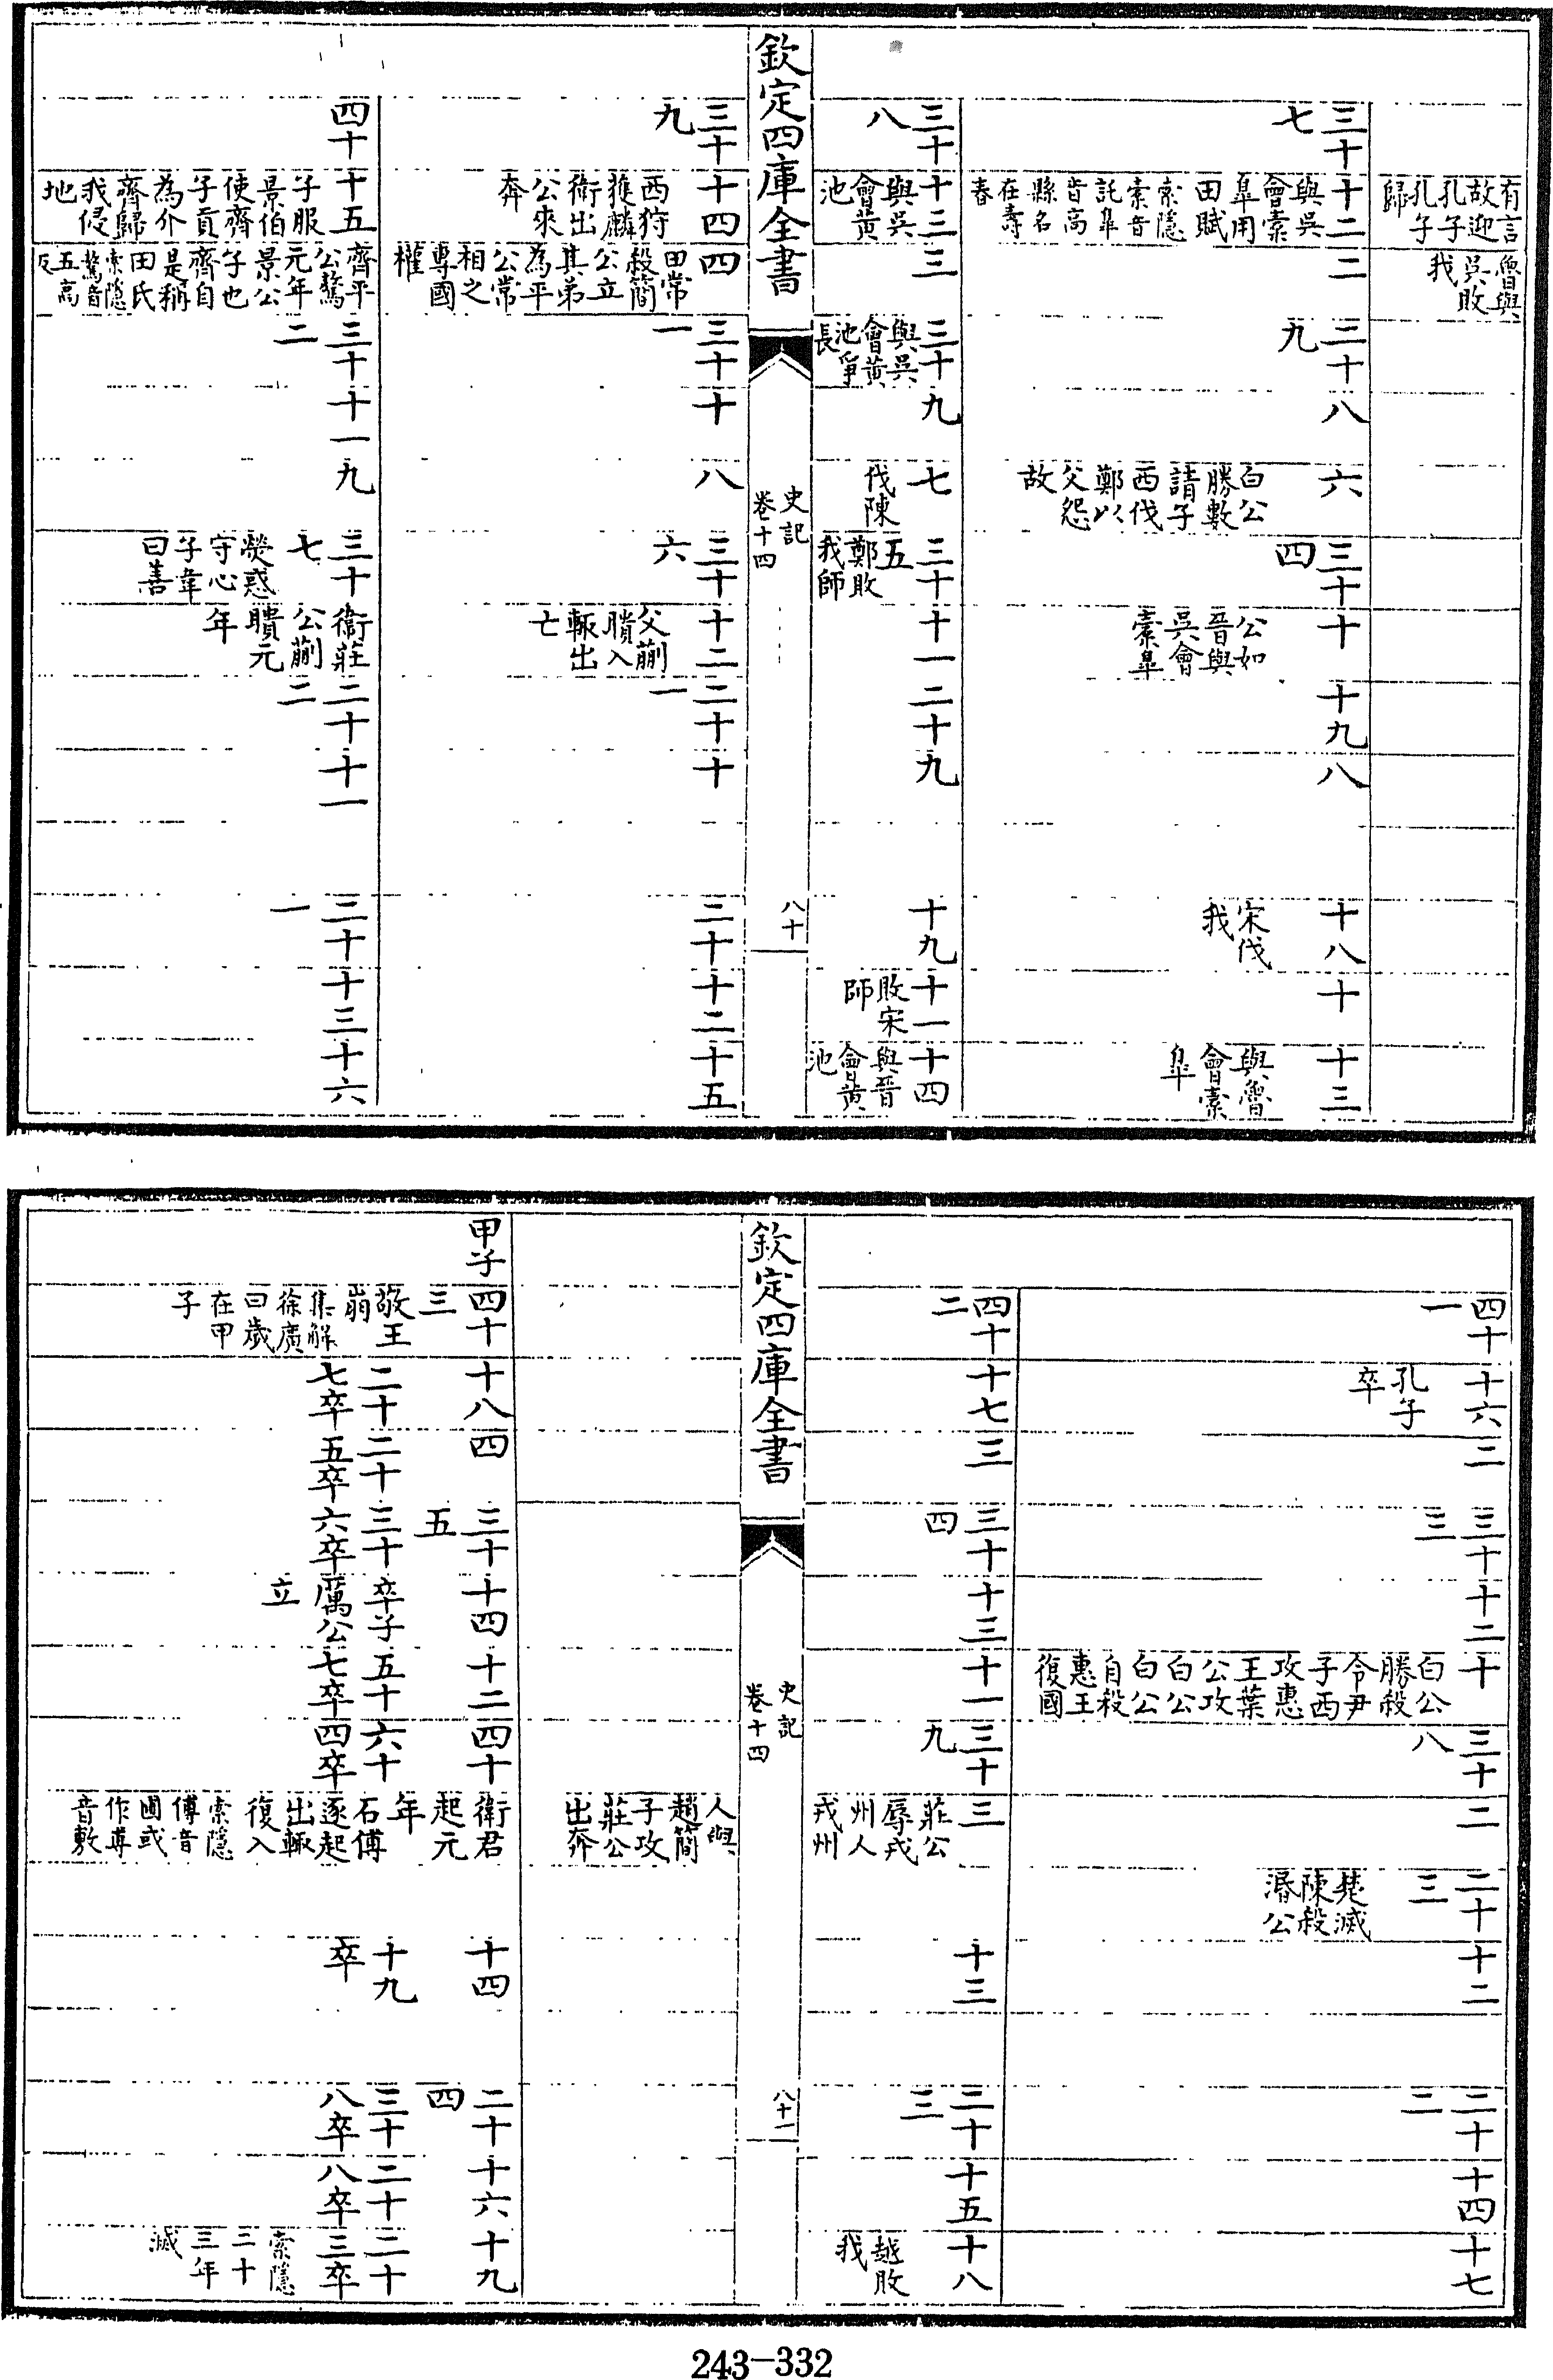 有言故迎孔子孔子歸
魯與吳敗我
三十七
十二 與吳會橐臯用田賦 索隱橐音託臯音高縣名在壽春
二
三十九
八
六 白公勝數請子西伐鄭以父怨故
三十四
十 公如晉與吳會橐臯
十九
八
十八 宋伐我
十
十三 與魯會橐臯
三十八
十三 與吳會黃池
三
三十 與吳會黃池爭長
九
七 伐陳
三十五 鄭敗我師
十一
二十
九
十九
十一 敗宋師
十四 與晉會黃池
欽定四庫全書
史記
卷十四
八十
三十九
十四 西狩獲麟衛出公來奔
四 田常殺簡公立其弟為平公常相之專國權
三十一
十
八
三十六
十二 父蒯聵入輒出亡
二十一
十
二十
十二
十五
四十
十五 子服景伯使齊子貢為介齊歸我侵地
齊平公驁元年景公子也齊自是稱田氏 索隱驁音五高反
三十二
十一
九
三十七 熒惑守心子韋曰善
衛莊公蒯聵元年
二十二
十一
二十一
十三
十六
四十一
十六 孔子卒
二
三十三
十二
十 白公勝殺令尹子西攻惠王葉公攻白公白公自殺惠王復國
三十八
二
二十三 楚滅陳殺湣公
十二
二十二
十四
十七
四十二
十七
三
三十四
十三
十一
三十九
三 莊公辱戎州人戎州
十三
二十三
十五
十八 越敗我
欽定四庫全書
史記
卷十四
八十一
人與趙簡子攻莊公出奔
甲子
四十三 敬王崩 集解徐廣曰歲在甲子
十八 二十七卒
四 二十五卒
三十五 三十六卒
十四 卒子厲公立
十二 五十七卒
四十 六十四卒
衛君起元年石傅逐起出輒復入 索隱傅音圃或作專音敷
十四 十九卒
二十四 三十八卒
十六 二十八卒
十九 二十三卒 索隱二十三年滅
243-332